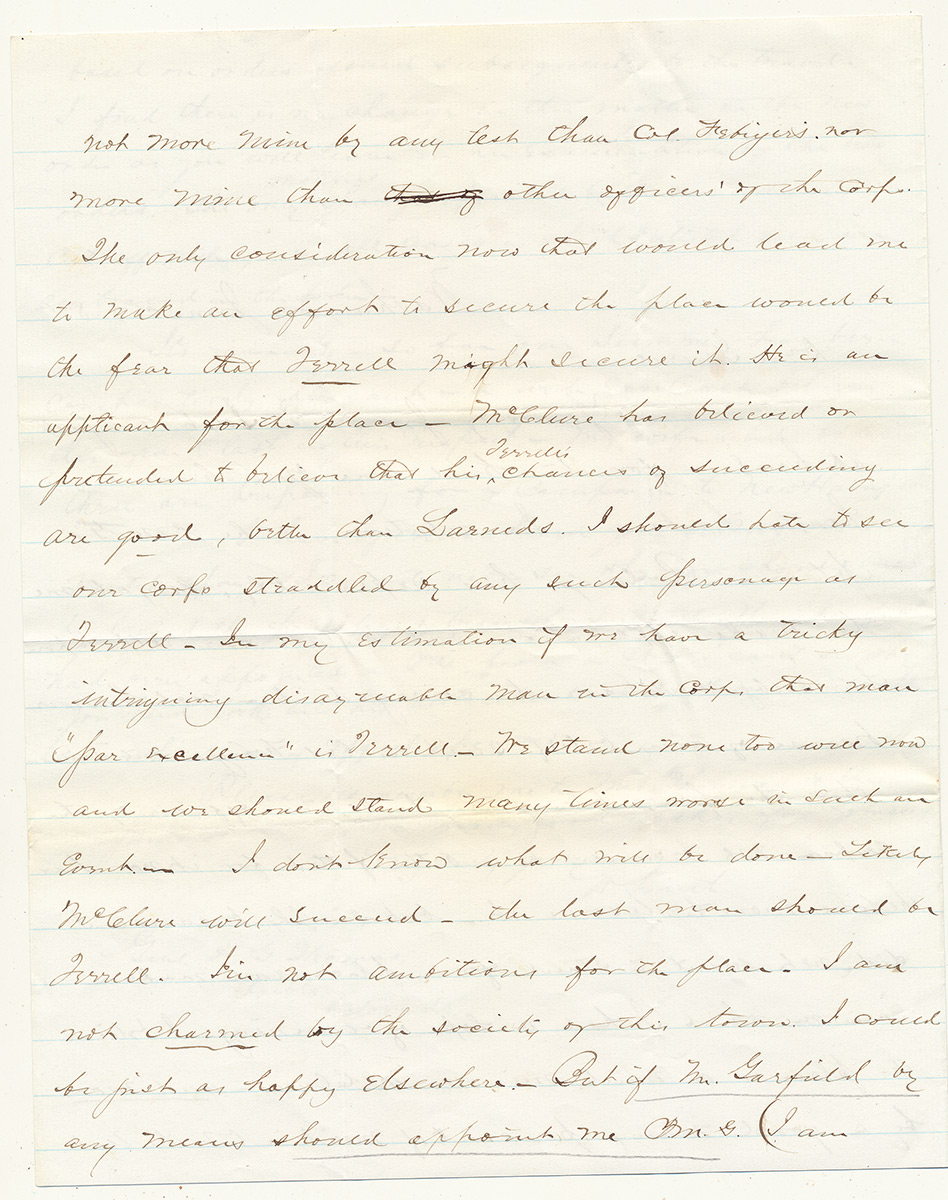 not more mine by any test than Col. Febiger's. nor
more mine than that of other officers' of the Corps.
The only consideration now that would lead me
to make an effort to secure the place would be
the fear that Terrell might secure it. He is an
applicant for the place — McClure has believed or
pretended to believe that his Terrell's chances of succeeding
are good, better than Larneds. I should hate to see
our corps straddled by any such personage as
Terrell — In my estimation if we have a tricky
intriguing disagreeable man in the Corps that man
"par excellence" is Terrell — We stand none too well now
and we should stand many times worse in such an
Event — I don't know what will be done — Likely
McClure will succeed — the last man should be
Terrell. I'm not ambitious for the place — I am
not charmed by the society of this town. I could
be just as happy Elsewhere. — But if Mr. Garfield by
any means should appoint me P.M.G. (I am